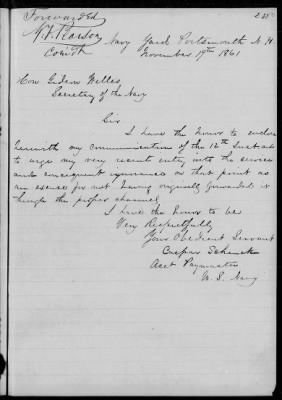 Forwarded
G. F. Pearson
Comdt
Navy Yard Portsmouth N. H.
November 19th 1861
Hon Gideon Welles
Secretary of the Navy
Sir
I have the honor to enclose
herewith my communication of the 12th Inst and
to urge my very recent entry into the service
and consequent ignorance on that point as
an excuse for not having originally forwarded it
through the proper channel
I have the honor to be
Very Respectfully
Your Obedient Servant
Caspar Schenck
Asst Paymaster
U. S. Navy